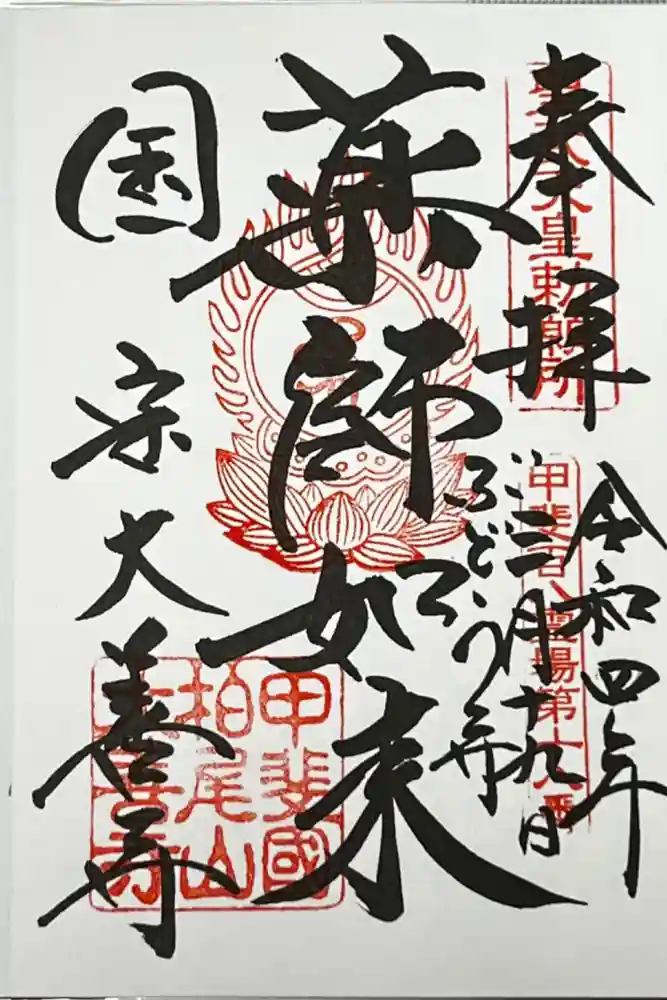 奉拝
令和四年
三月十九日
ぶどう寺
薬師如来
国宝大善寺
聖武天皇勅願所
甲斐百八霊場第十八番
甲斐國
柏尾山
大善寺